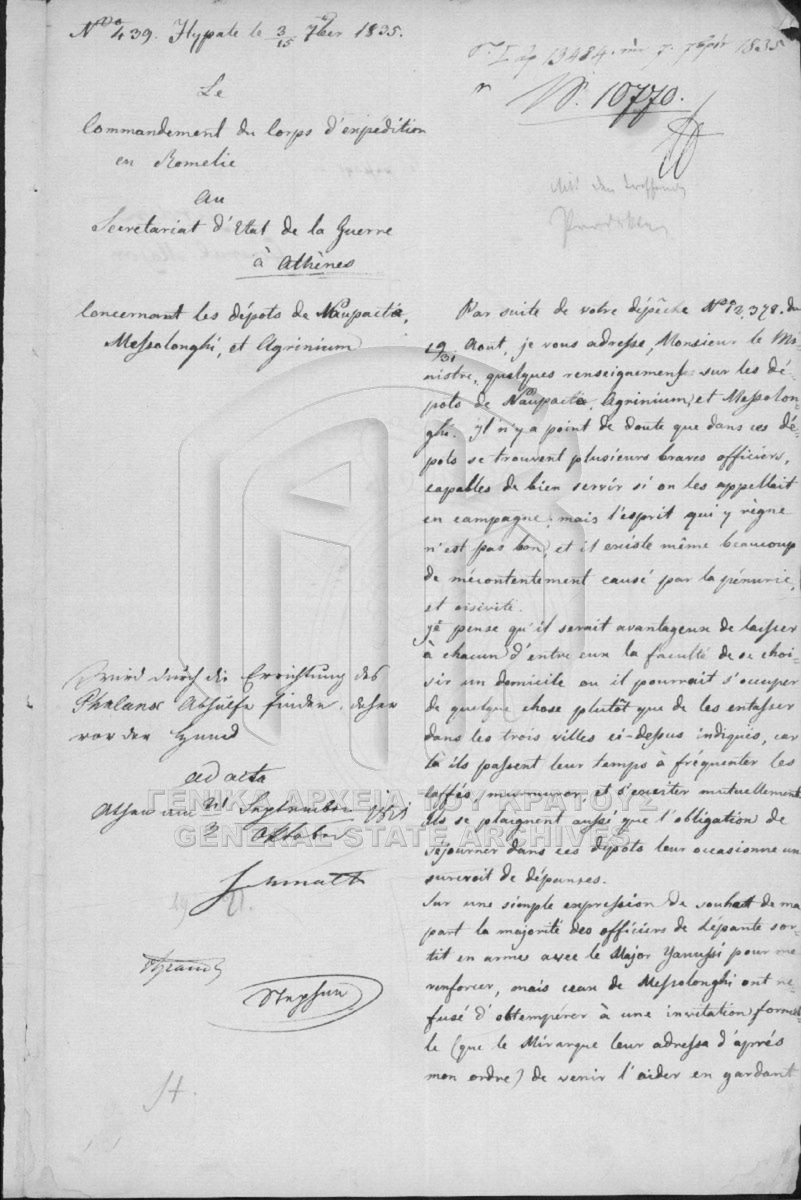 No 439. Hypate le 3/15 7ber 1835.
13484. 7. 1835
No. 10770.
Le
Commandement du Corps d'expedition
en Romelie
au
Secretariat d'Etat de la Guerre
à Athènes
Concernant les dépots de Naupactà,
Messolonghi, et Agrinium
Par suite de votre dépêche No 12,378. du
19/31 Août, je vous adresse, Monsieur le Mi-
nistre, quelques renseignements sur les dé-
pots de Naupacta, Agrinium, et Messolon-
ghi. Il n'y a point de doute que dans ces dé-
pots se trouvent plusieurs braves officiers,
capables de bien servir si on les appellait
en campagne; mais l'esprit qui y règne
n'est pas bon, et il existe même beaucoup
de mécontentement causé par la pénurie,
et oisiveté.
je pense qu'il serait avantageux de laisser
à chacun d'entre eux la faculté de se choi-
sir un domicile ou il pourrait s'occuper
de quelque chose plutôt que de les entasser
dans les trois villes ci-dessus indiqués, car
là ils passent leur temps à fréquenter les
Caffés, murmurer et s'exciter mutuellement
Ils se plaignent aussi que l'obligation de
séjourner dans ces dépots leur occasionne un
surcroit de dépenses.
Sur une simple expression de souhait de ma
part la majorité des officiers de Lépante sor-
tit en armes avec le Major Yanussi pour me
renforcer, mais ceux de Messolonghi ont re-
fusé d'obtempérer à une invitation formel-
le (que le Mirarque leur adressa d'après
mon ordre) de venir l'aider en gardant
wird durch die Errichtung des
Phalanx Abhülfe finden, daher
vor der Hand
ad acta
Athen am 21/3 September/Oktober 1835
Schmaltz
Stephan
St.
ΓΕΝΙΚΑ ΑΡΧΕΙΑ ΤΟΥ ΚΡΑΤΟΥΣ
GENERAL STATE ARCHIVES